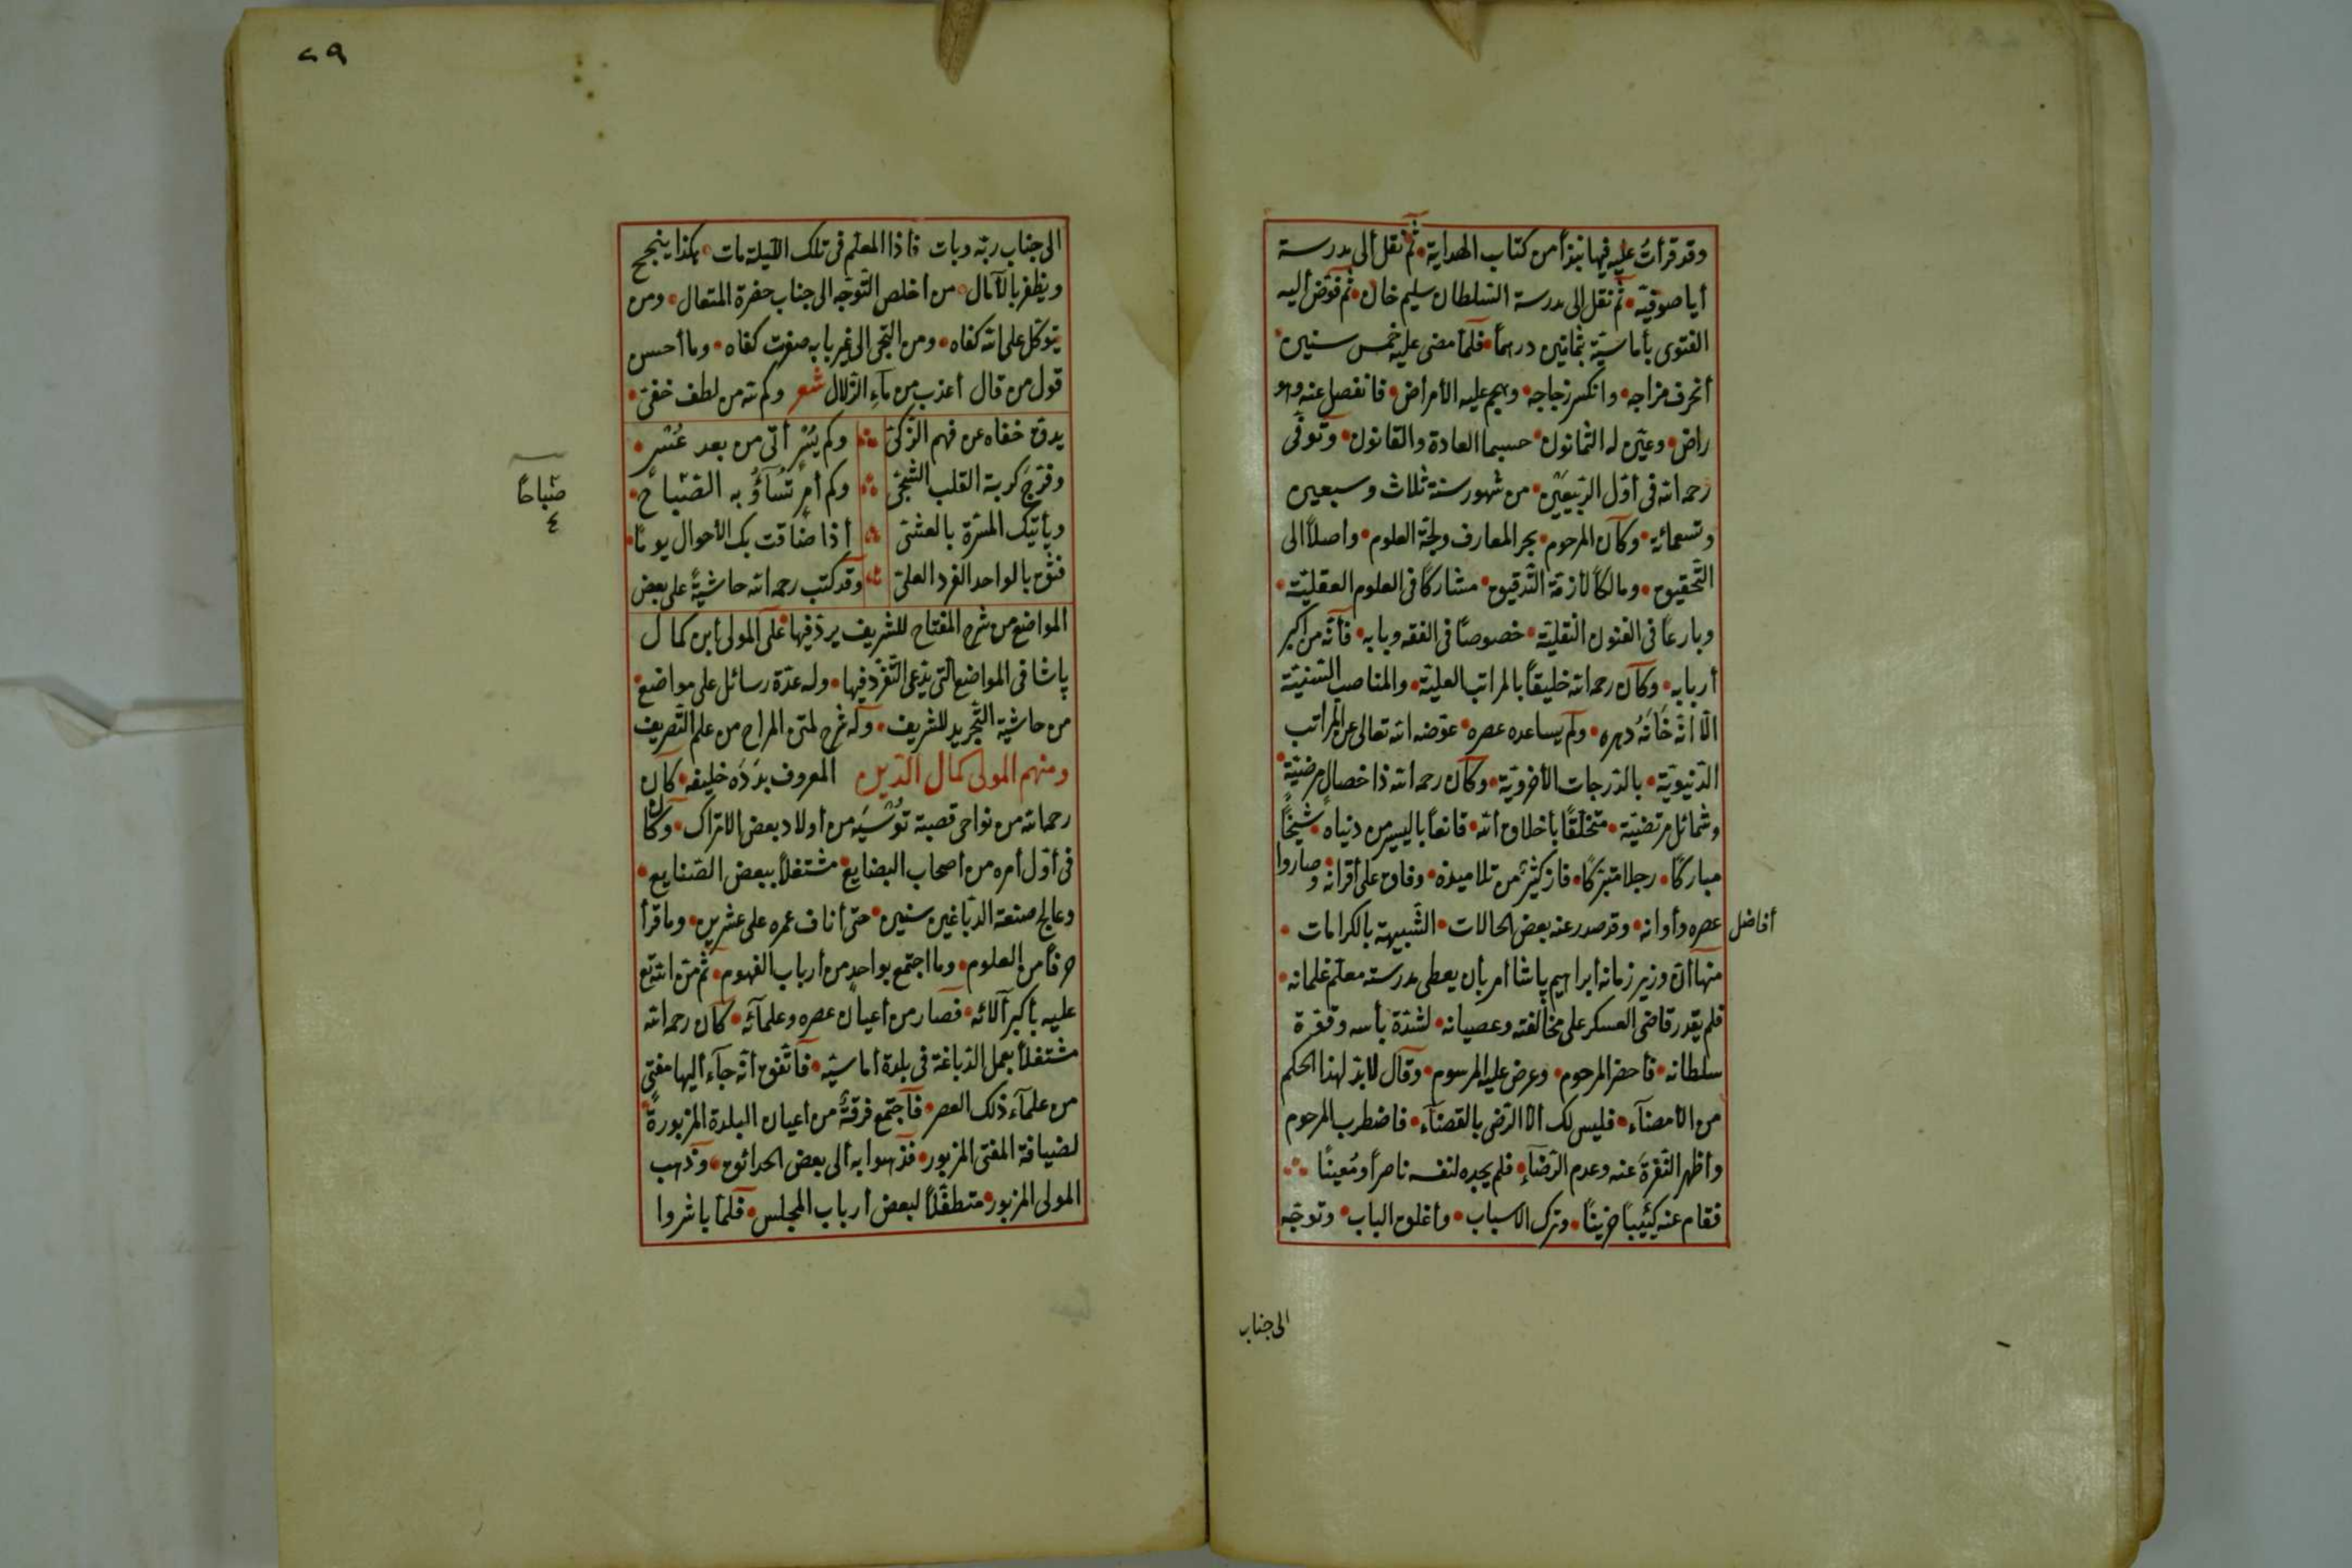 وقد قرأتُ عليه فيها نبذاً من كتاب الهداية • ثم نقل الى مدرسة
أيا صوفيّة • ثم نقل الى مدرسة السّلطان سليم خان • ثم فوّض اليه
الفتوى بأماسيّة بثمانين درهماً • فلمّا مضى عليه خمس سنين •
أنحرف مزاجه • وانكسر زجاجه • وهجم عليه الأمراض • فانفصل عنه وهو
راض • وعيّن له الثمانون • حسبما العادة والقانون • وتوفّى
رحمه الله فى أوّل الرّبيعَين • من شهور سنة ثلاث وسبعين
وتسعمائة • وكان المرحوم • بحر المعارف ولجّة العلوم • واصلاً الى
التّحقيق • ومالكاً لأزمّة التّدقيق • مشاركاً فى العلوم العقليّة •
وبارعاً فى الفنون النّقليّة • خصوصاً فى الفقه وبابه • فأنّه من أكبر
أربابه • وكان رحمه الله خليقاً بالمراتب العليّة • والمناصب السّنيّة
الّا أنّه خَانَهُ دهره • ولم يساعده عصره • عوّضه الله تعالى عن المراتب
الدّنيويّة • بالدّرجات الأخرويّة • وكان رحمه الله ذا خصالٍ مرضيّة •
وشمائل مرتضيّة • متخلّقاً بأخلاق الله • قانعاً باليسير من دنياه • شيخاً
مباركاً • رجلا متبرّكاً • فاز كثيرٌ من تلاميذه • وفاق على أقرانه • وصاروا
أفاضل عصره وأوانه • وقد صدر عنه بعض الحالات • الشّبيهة بالكرامات •
منها أنّ وزير زمانه ابراهيم پاشا أمر بأن يعطى مدرسته معلّم غلمانه •
فلم يقدر قاضى العسكر على مخالفته وعصيانه • لشدّة بأسه وقوّة
سلطانه • فأحضر المرحوم • وعرض عليه المرسوم • وقال لابدّ لهذا الحكم
من الأمضآء • فليس لك الّا الرّضى بالقضآء • فاضطرب المرحوم
وأظهر النّفرة عنه وعدم الرّضآء • فلم يجده لنفسه ناصراً ومُعيناً
فقام عنه كئيباً حزيناً • وترك الأسباب • وأغلق الباب • وتوجّه
الى جناب
٢٩
الى جناب ربّه وبات فاذا المعلّم فى تلك اللّيلة مات • هكذا ينجح
ويظفر بالآمال • من أخلص التّوجّه الى جناب حضرة المتعال • ومن
يتوكّل على الله كفاه • ومن التجى الى غير بابه صفرت كفاه • وما أحسن
قول من قال أعذب من مآءِ الزّلال شعر وكم لله من لطف خفىّ •
يدقّ خفاه عن فهم الذّكىّ وكم يُسْرٍ أتى من بعد عُسْرٍ •
وفرّج كربة القلب الشّجىّ وكم أمرٍ تُسَآؤُ به الصّباح •
صَباحاً
ع
ويأتيك المسرّة بالعشىّ أذا ضاقت بك الأحوال يوماً •
فثق بالواحد الفرد العلىّ وقد كتب رحمه الله حاشيةً على بعض
المواضع من شرح المفتاح للشريف يردّ فيها على المولى أبن كمال
پاشا فى المواضع الّتى يدّعى التّفرّد فيها • وله عدّة رسائل على مواضع
من حاشية التّجريد للشريف • وله شرح لمتن المراح من علم التّصريف
ومنهم المولى كمال الدّين المعروف بدَدَه خليفه • كان
رحمه الله من نواحى قصبة تُوسيَه من أولاد بعض الاتراك • وكان
فى أوّل أمره من أصحاب البضايع • مشتغلاً ببعض الصّنايع •
وعالج صنعة الدبّاغين سنين • حتى أناف عمره على عشرين • وما قرأ
حرفاً من العلوم • وما اجتمع بواحدٍ من أرباب الفهوم • ثم منّ الله تع
عليه بأكبر آلائه • فصار من أعيان عصره وعلمآئه • كان رحمه الله
مشتغلاً بعمل الدّباغة فى بلدة أماسيّه • فاتّفق أنّه جآء أليها مفتى
من علمآء ذلك العصر • فاجتمع فرقةٌ من أعيان البلدة المزبورة
لضيافة المفتى المزبور • فذهبوا به ألى بعض الحدائق • وذهب
المولى المزبور • متطفّلاً لبعض أرباب المجلس • فلمّا باشروا